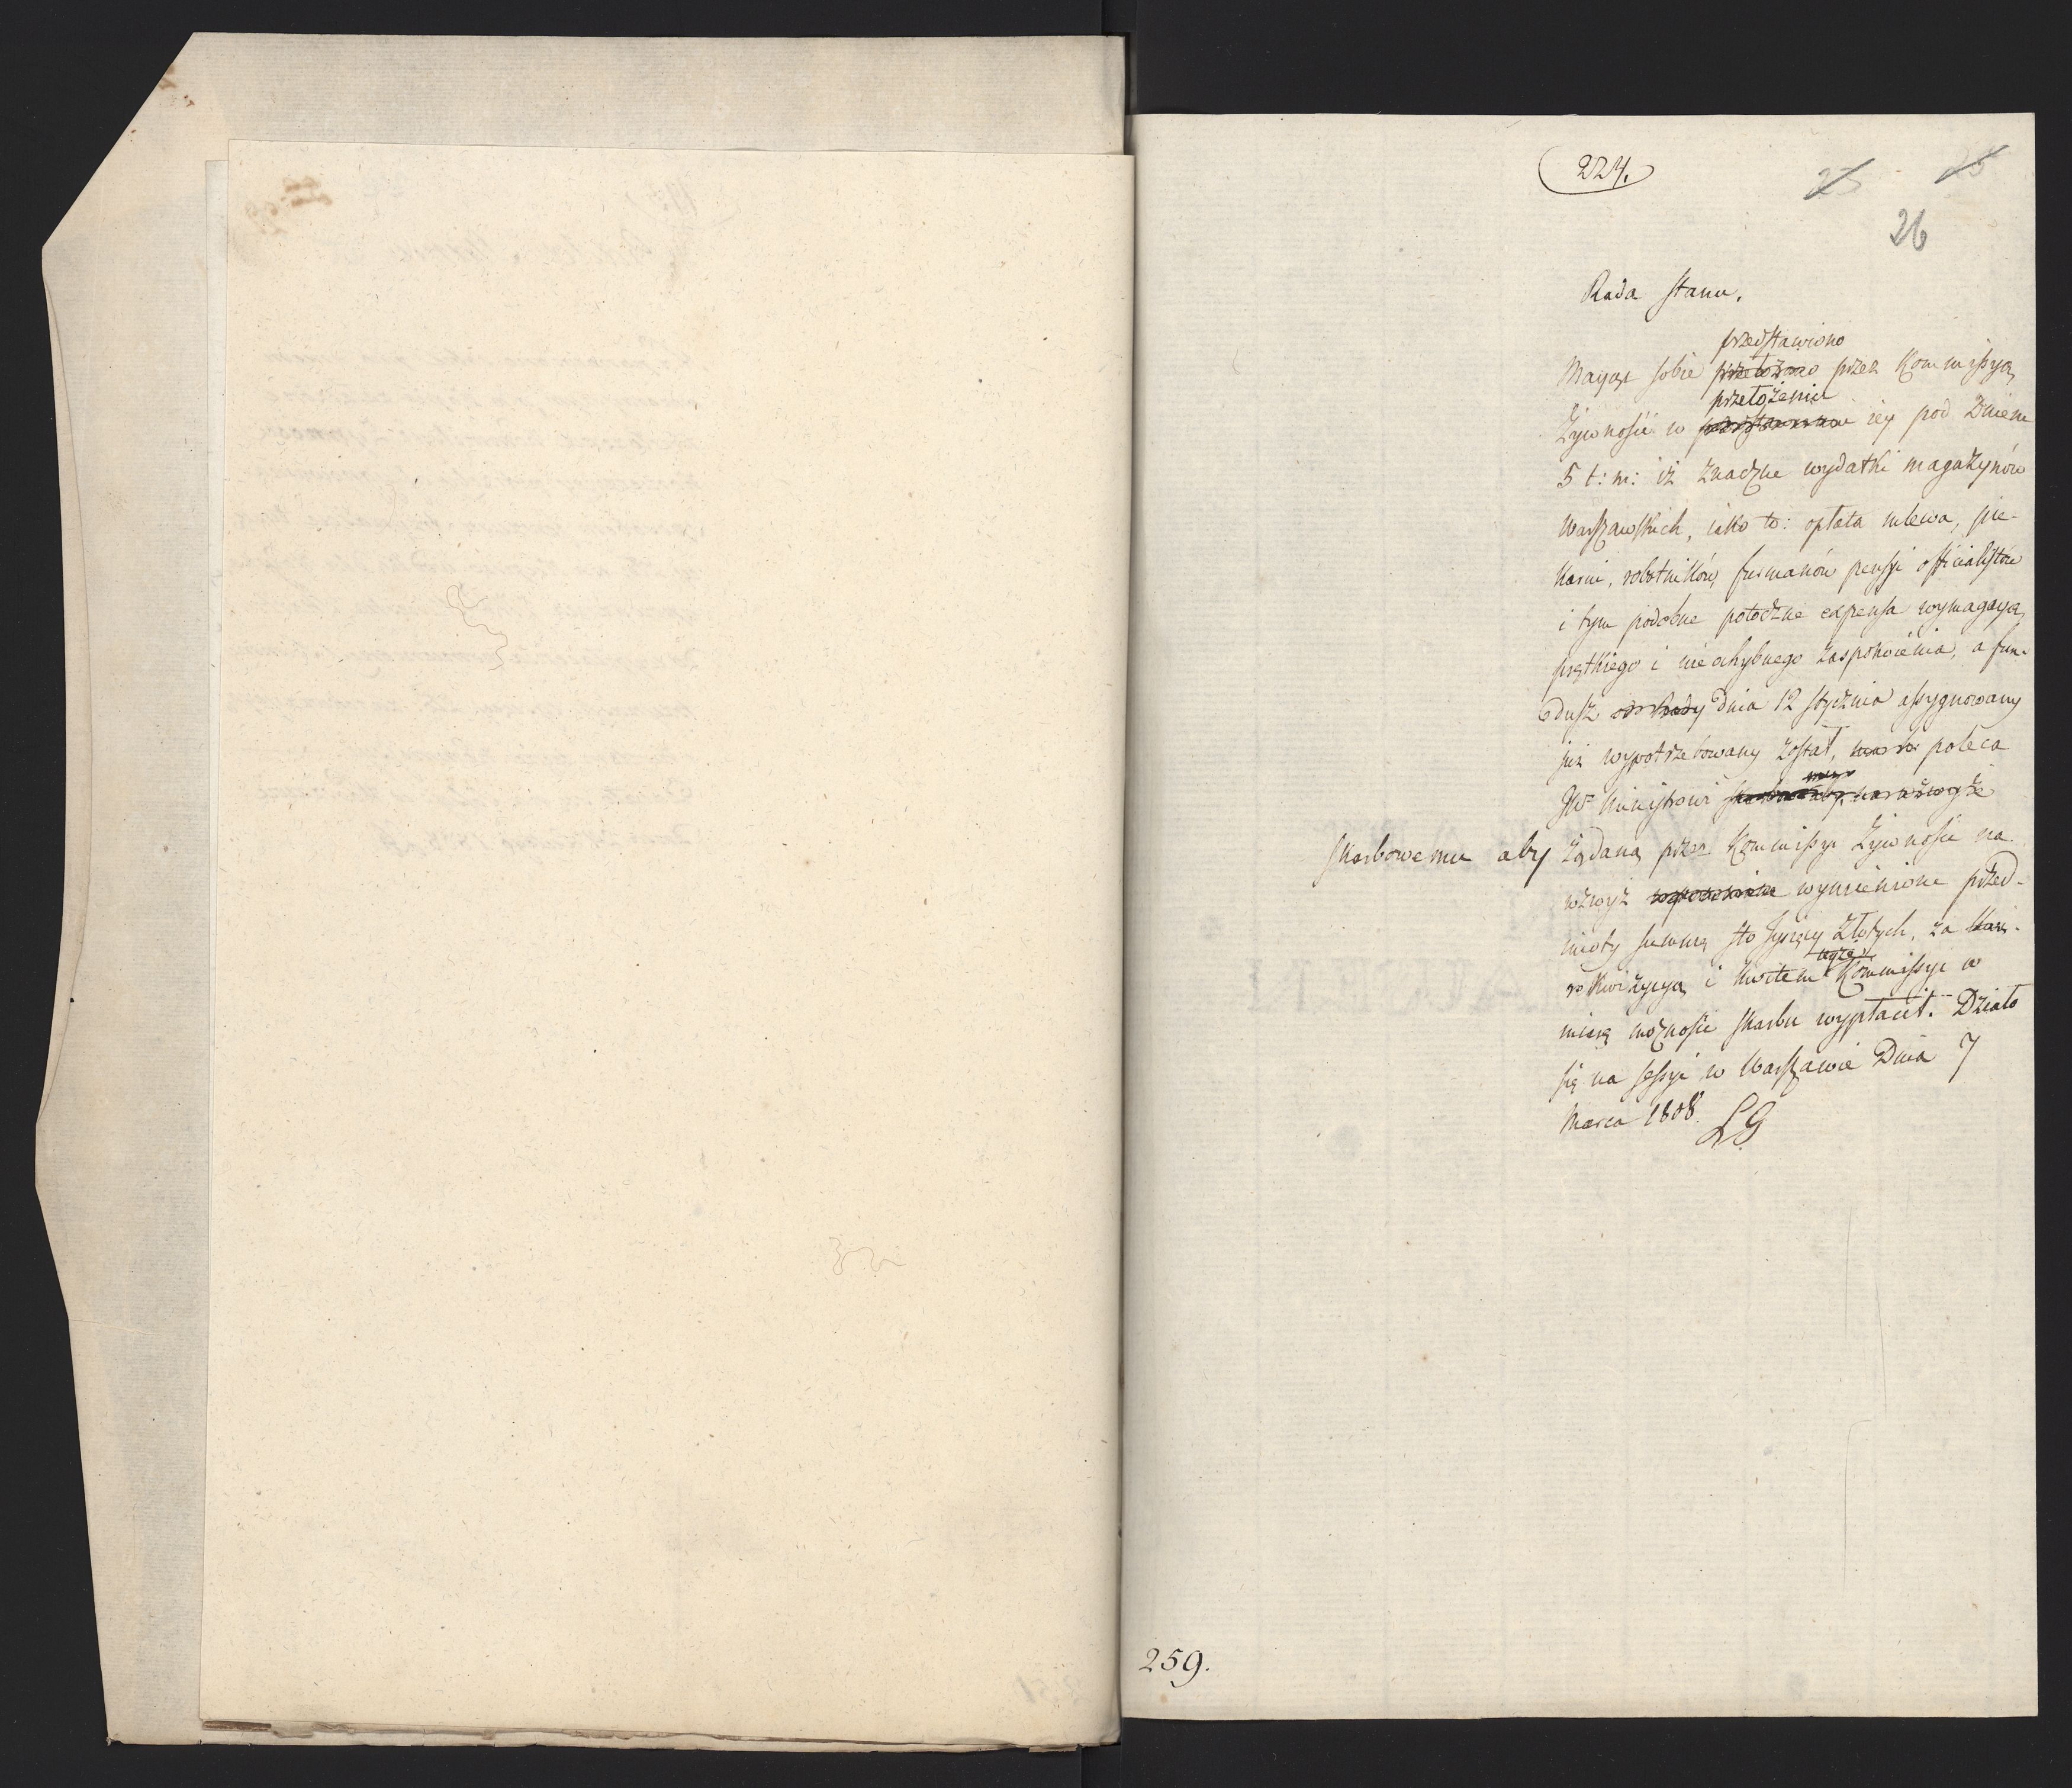 224.
25 25
26
Rada Stanu.
przedstawiono
Maiąc sobie przełożono przez Kommissyą
przełożeniu
Żywności w iey pod Dniem
5 t: m: iż znaczne wydatki magazynów
Warszawskich, iako to: opłata mlewa, pie-
karni, robotników, furmanów pensje officialistów
i tym podobne potoczne expensa wymagaią
prętkiego i niechybnego zaspokoienia, a fun-
dusz od Rady Dnia 12 stycznia assygnowany
już wypotrzebowany został, poleca
JW Ministrowi
Skarbowemu aby żądaną przez Kommissyę Żywności na
wzwyż wymienione przed-
mioty summę sto tysięcy złotych, za
teyże
rekwizycyą i kwitem Kommissyi w
miarę możności skarbu wypłacił. Działo
się na sessyi w Warszawie Dnia 7
Marca 1808. LG
259.